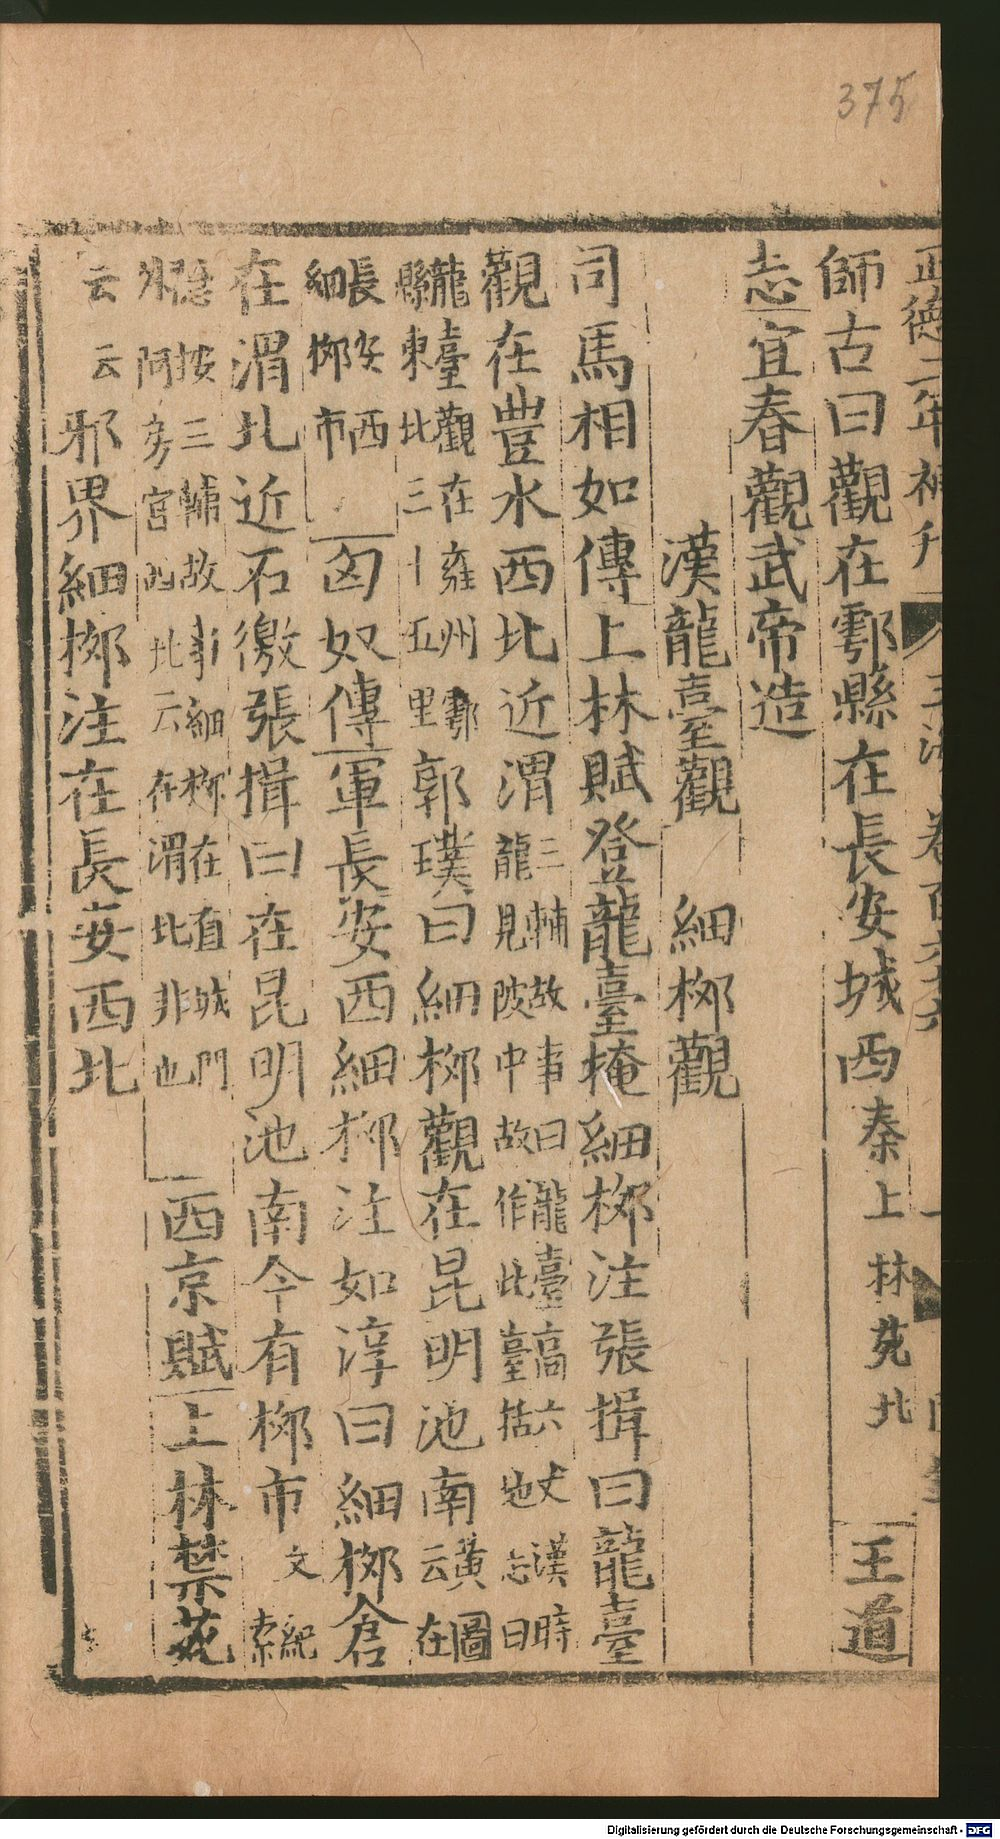 375
正德二年補刊
師古曰觀在鄠縣在長安城西秦上林苑北 王道
志宜春觀武帝造
漢龍臺觀 細桺觀
司馬相如傳上林賦登龍臺掩細桺注張揖曰龍臺
觀在豐水西北近渭三輔故事曰龍臺高六丈漢時龍見陂中故作此臺括地志曰
龍臺觀在雍州鄠縣東北三十五里郭璞曰細桺觀在昆明池南黃圖云在
長安西細桺市匈奴傳軍長安西細桺注如淳曰細桺倉
在渭北近石徼張揖曰在昆明池南今有桺市文紀索
隱按三輔故事細桺在直城門外阿旁宮西北云在渭北非也西京賦上林禁苑
云云邪界細桺注在長安西北
Digitalisierung gefördert durch die Deutsche Forschungsgemeinschaft - DFG